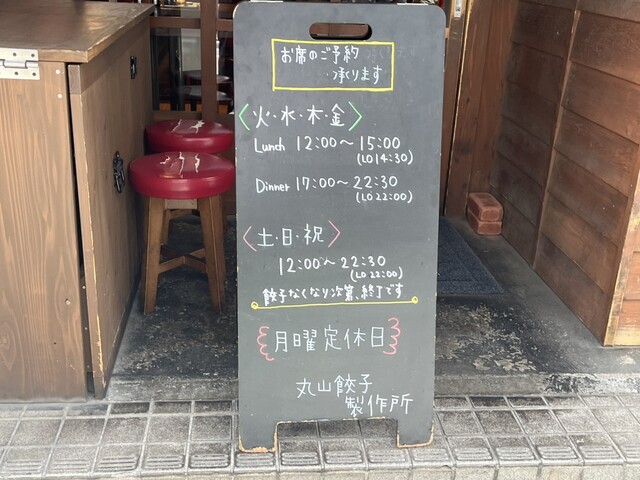 お席のご予約
承ります
〈火・水・木・金〉
Lunch 12:00〜15:00
(LO14:30)
Dinner 17:00〜22:30
(LO22:00)
〈土・日・祝〉
12:00〜22:30
(LO22:00)
餃子なくなり次第、終了です
月曜定休日
丸山餃子
製作所